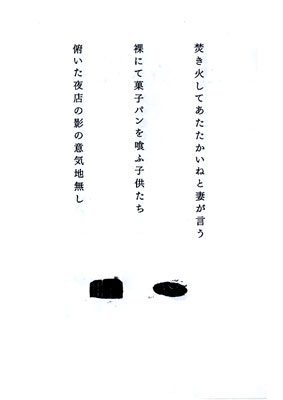 焚き火してあたたかいねと妻が言う
裸にて菓子パンを喰ふ子供たち
俯いた夜店の影の意気地無し